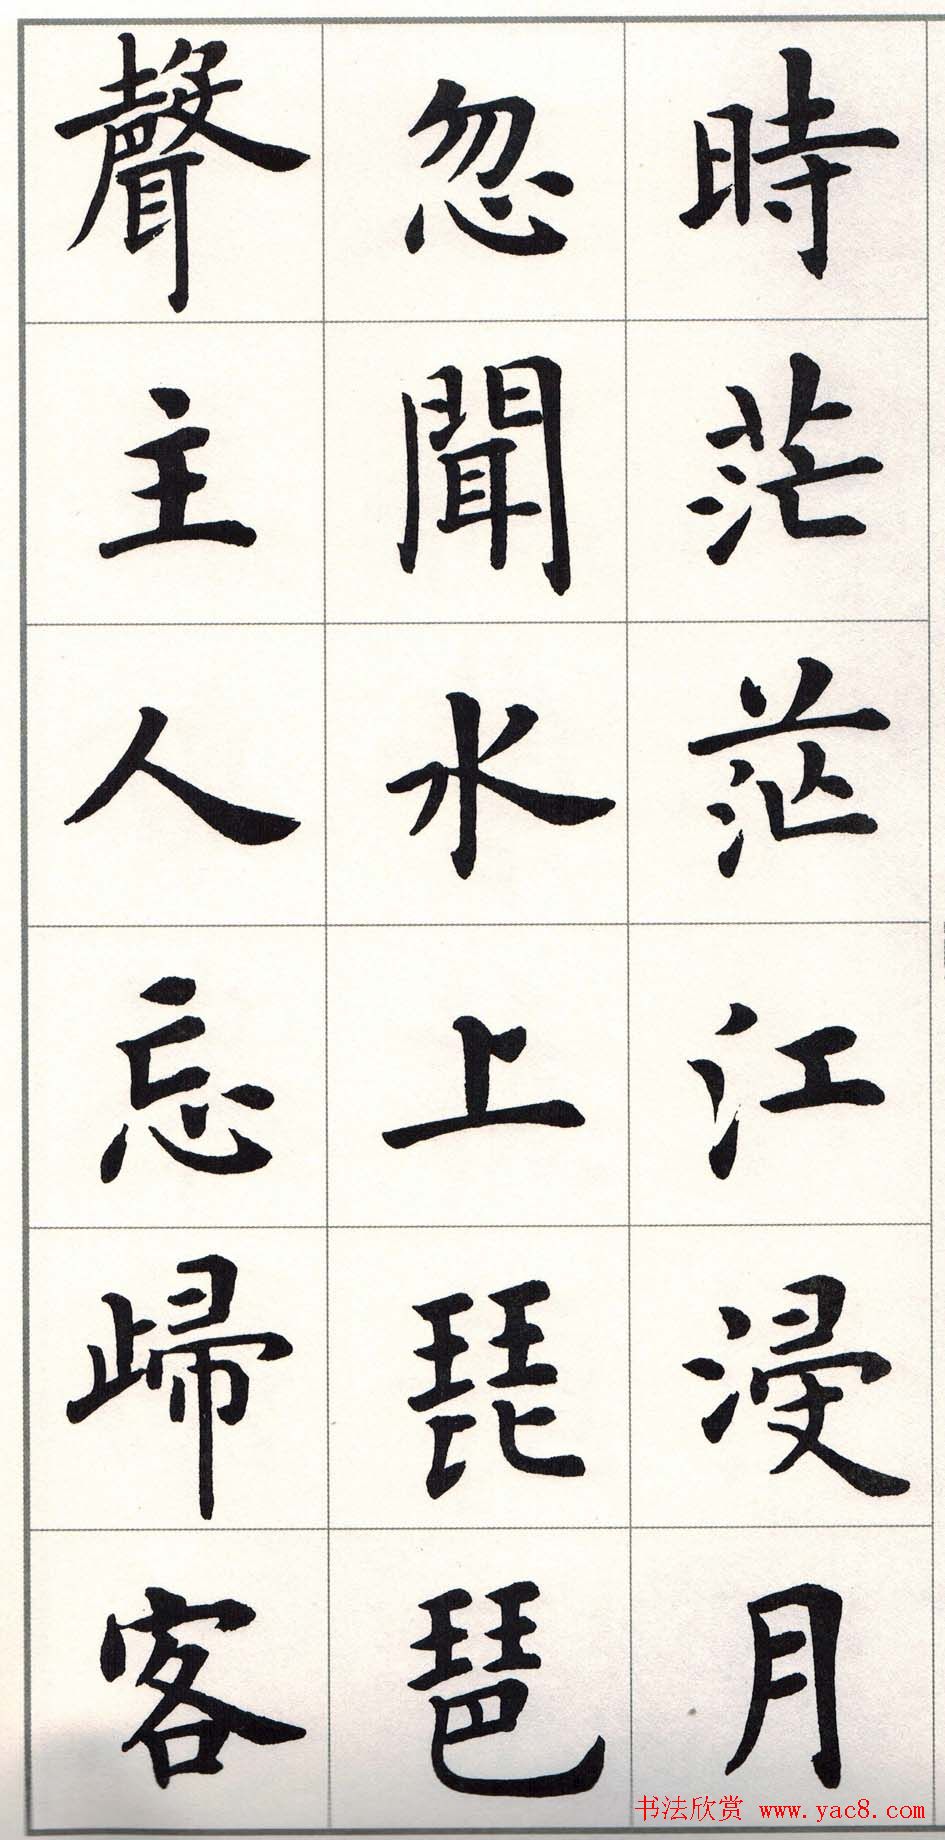 時茫茫江浸月
忽聞水上琵琶
聲主人忘歸客
书法欣赏 www.yac8.com